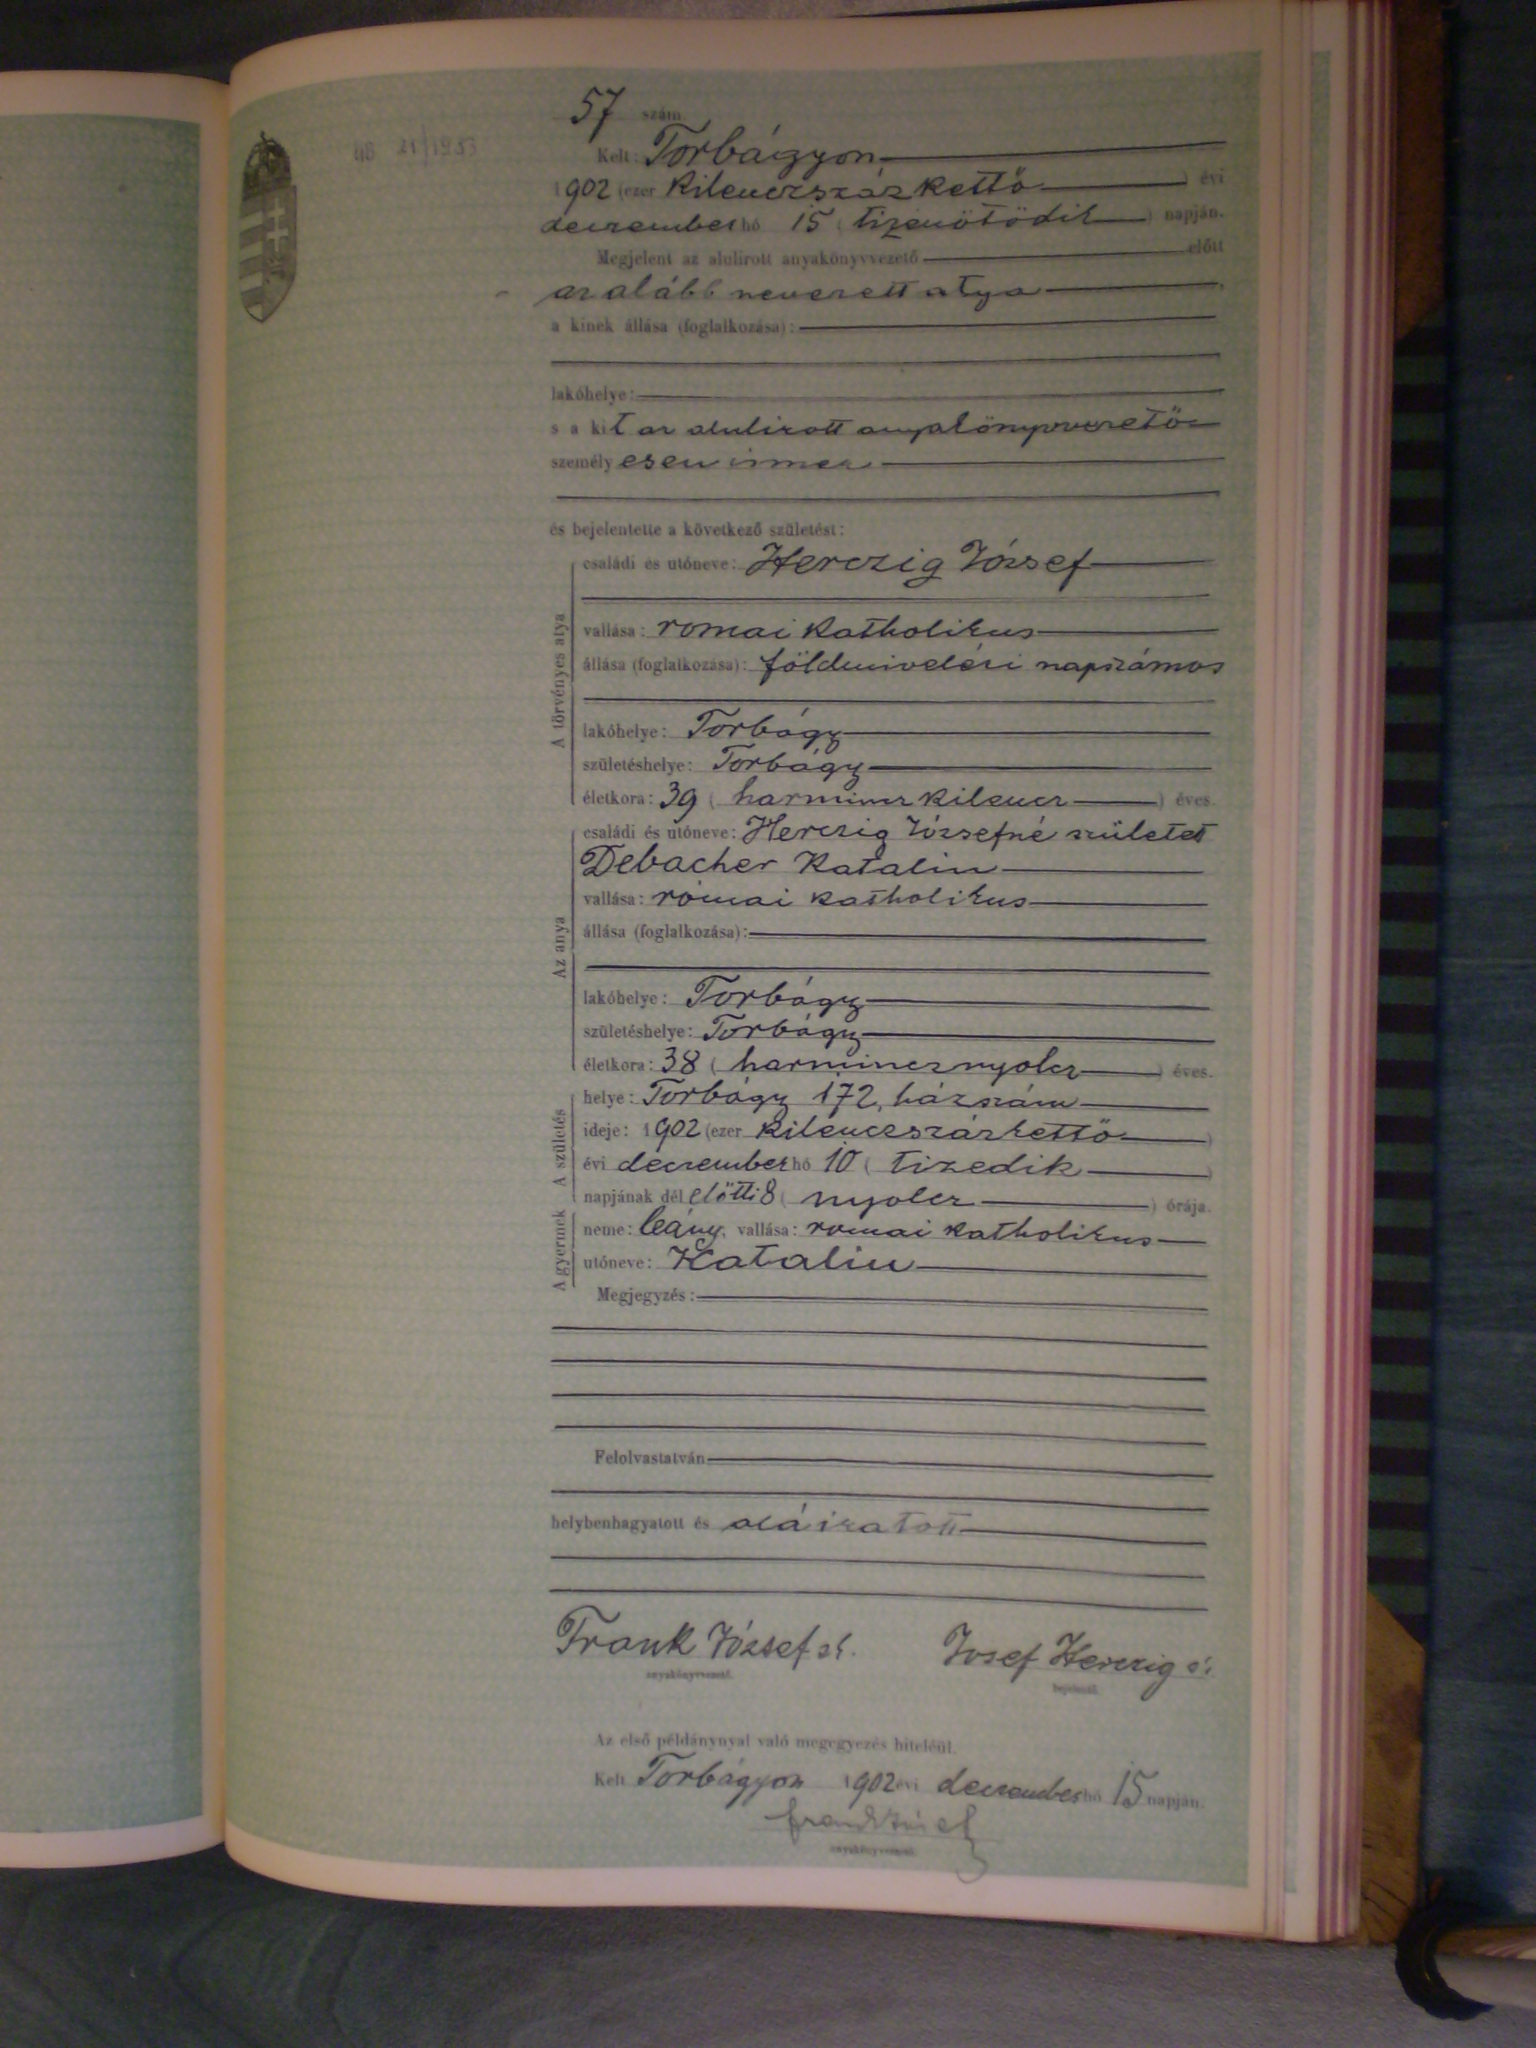 57 szám.
21/1933
Kelt: Torbágyon
1902 (ezer kilenczszáz kettő ) évi
deczember hó 15 ( tizenötödik ) napján.
Megjelent az alulirott anyakönyvvezető előtt
az alább nevezett atya ,
a kinek állása (foglalkozása):
lakóhelye:
s a kit az alulirott anyakönyvvezető
személyesen ismer
és bejelentette a következő születést:
A törvényes atya
családi és utóneve: Herczig József
vallása: romai katholikus
állása (foglalkozása): földmivelési napszámos
lakóhelye: Torbágy
születéshelye: Torbágy
életkora: 39 ( harmincz kilencz ) éves.
Az anya
családi és utóneve: Herczig Józsefné született
Debacher Katalin
vallása: római katholikus
állása (foglalkozása):
lakóhelye: Torbágy
születéshelye: Torbágy
életkora: 38 ( harmincznyolcz ) éves.
A születés
helye: Torbágy 172, házszám
ideje: 1902 (ezer kilenczszázkettő )
évi deczember hó 10 ( tizedik )
napjának dél előtti 8 ( nyolcz ) órája.
A gyermek
neme: leány, vallása: romai katholikus
utóneve: Katalin
Megjegyzés:
Felolvastatván
helybenhagyatott és aláiratott
Frank József sk. Josef Herczig
anyakönyvvezető. bejelentő.
Az első példánynyal való megegyezés hiteléül.
Kelt Torbágyon 1902 évi deczember hó 15 napján.
anyakönyvvezető.